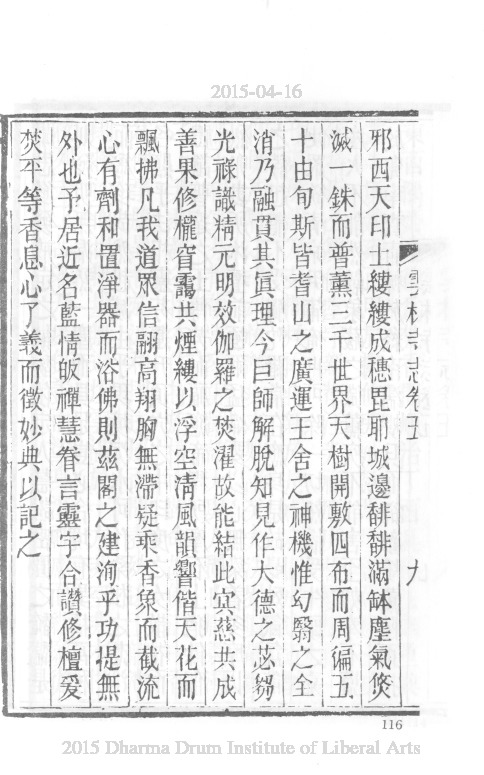 2015-04-16
雲林寺志卷五
九
邪西天印土縷縷成穗毘耶城邊馡馡滿缽塵氣倐
滅一銖而普薰三千世界天樹開敷四布而周徧五
十由旬斯皆耆山之廣運王舍之神機惟幻翳之全
消乃融貫其眞理今巨師解脫知見作大德之苾芻
光祿識精元明效伽羅之焚濯故能結此㝠慈共成
善果修櫳窅靄共煙縷以浮空淸風韻響偕天花而
飄拂凡我道眾信翮高翔胸無滯疑乘香象而截流
心有劑和置淨器而浴佛則兹閣之建洵乎功提無
外也予居近名藍情皈禪慧眷言靈宇合讚修檀爰
焚平等香息心了義而徵妙典以記之
116
2015 Dharma Drum Institute of Liberal Arts